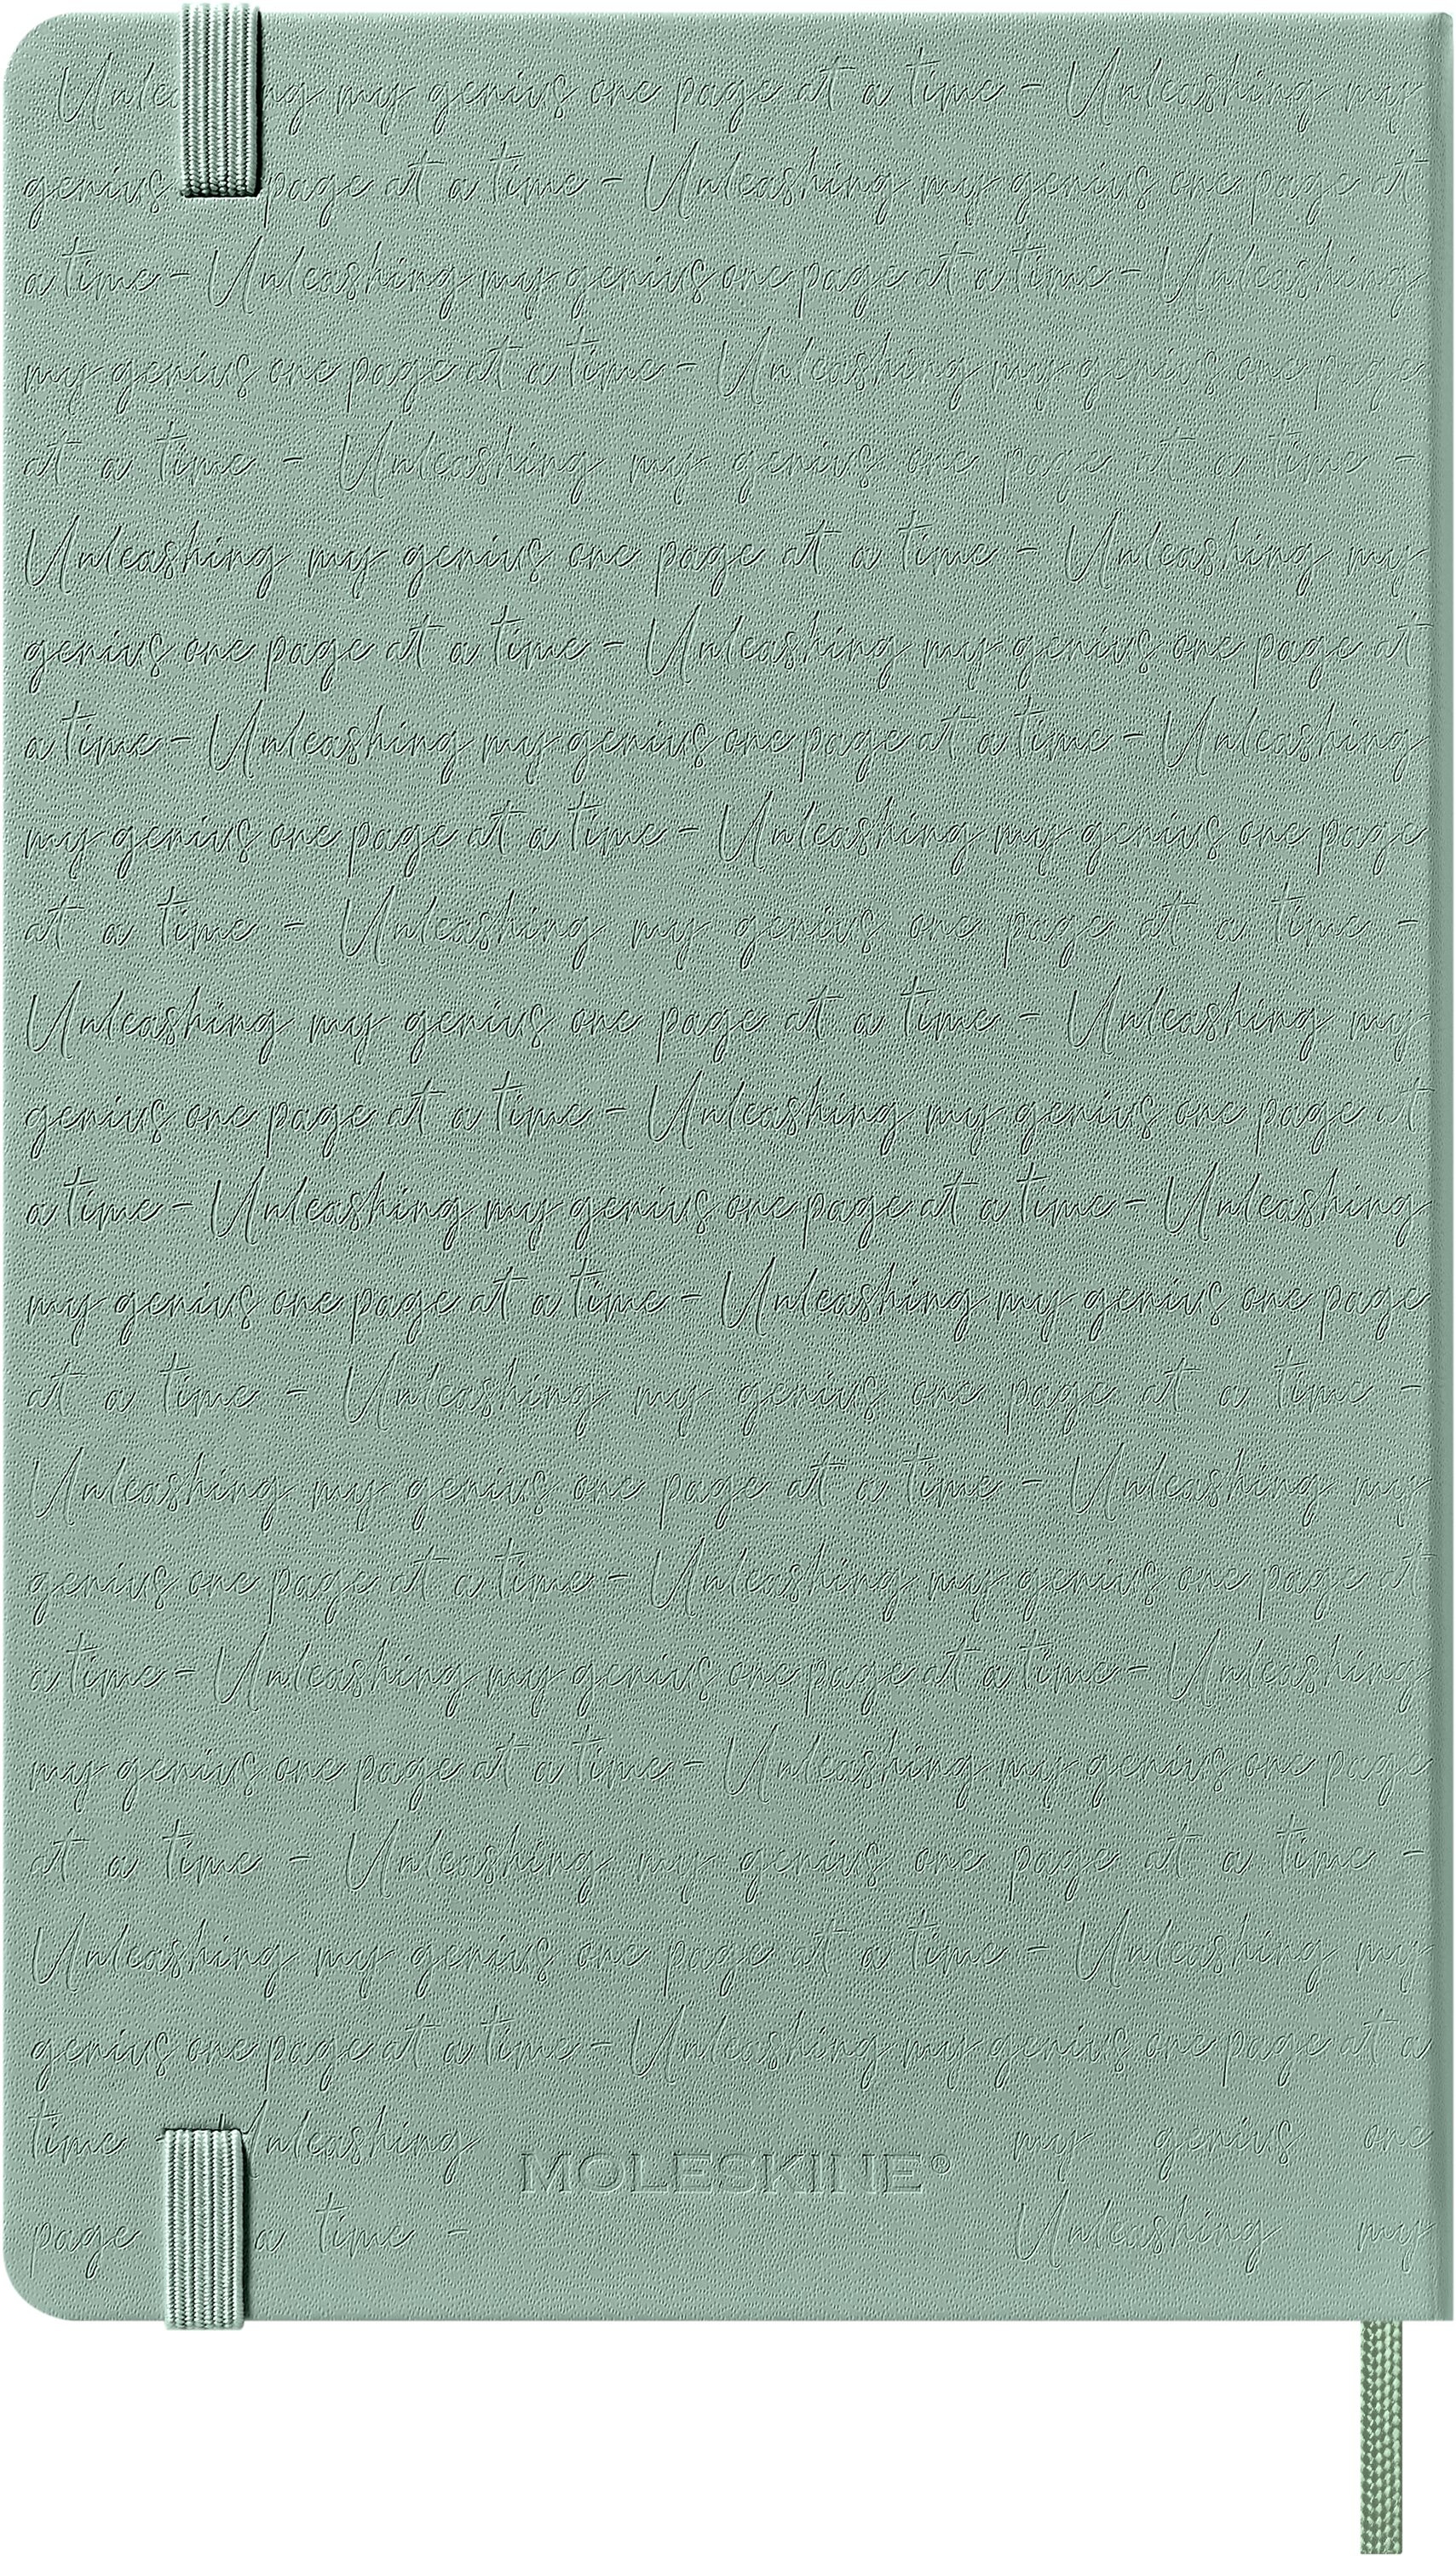 Unle ng my genius one page at a time - Unleashing my
genius page at a time - Unleashing my genius one page at
a time - Unleashing my genius one page at a time - Unleashing
my genius one page at a time - Unleashing my genius one page
at a time - Unleashing my genius one page at a time -
Unleashing my genius one page at a time - Unleashing my
genius one page at a time - Unleashing my genius one page at
a time - Unleashing my genius one page at a time - Unleashing
my genius one page at a time - Unleashing my genius one page
at a time - Unleashing my genius one page at a time -
Unleashing my genius one page at a time - Unleashing my
genius one page at a time - Unleashing my genius one page at
a time - Unleashing my genius one page at a time - Unleashing
my genius one page at a time - Unleashing my genius one page
at a time - Unleashing my genius one page at a time -
Unleashing my genius one page at a time - Unleashing my
genius one page at a time - Unleashing my genius one page at
a time - Unleashing my genius one page at a time - Unleashing
my genius one page at a time - Unleashing my genius one page
at a time - Unleashing my genius one page at a time -
Unleashing my genius one page at a time - Unleashing my
genius one page at a time - Unleashing my genius one page at a
time Unleashing my genius one
MOLESKINE®
page a time - Unleashing my